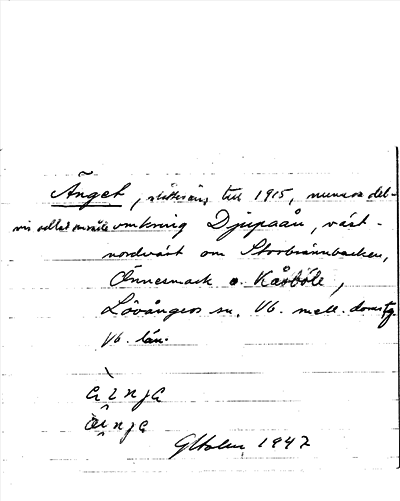 Änget, slåtteräng till 1915, numera del-
vis odlat område omkring Djupaån, väst-
nordväst om Storbrännbacken,
Önnesmark o. Kåsböle,
Lövångers sn. Vb. mell. domsg.
Vb. län.
1947